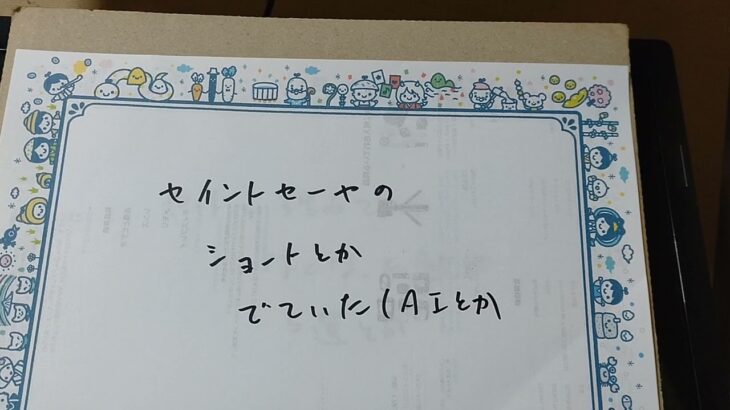 セイントセーヤの
ショートとか
でていた(AIとか